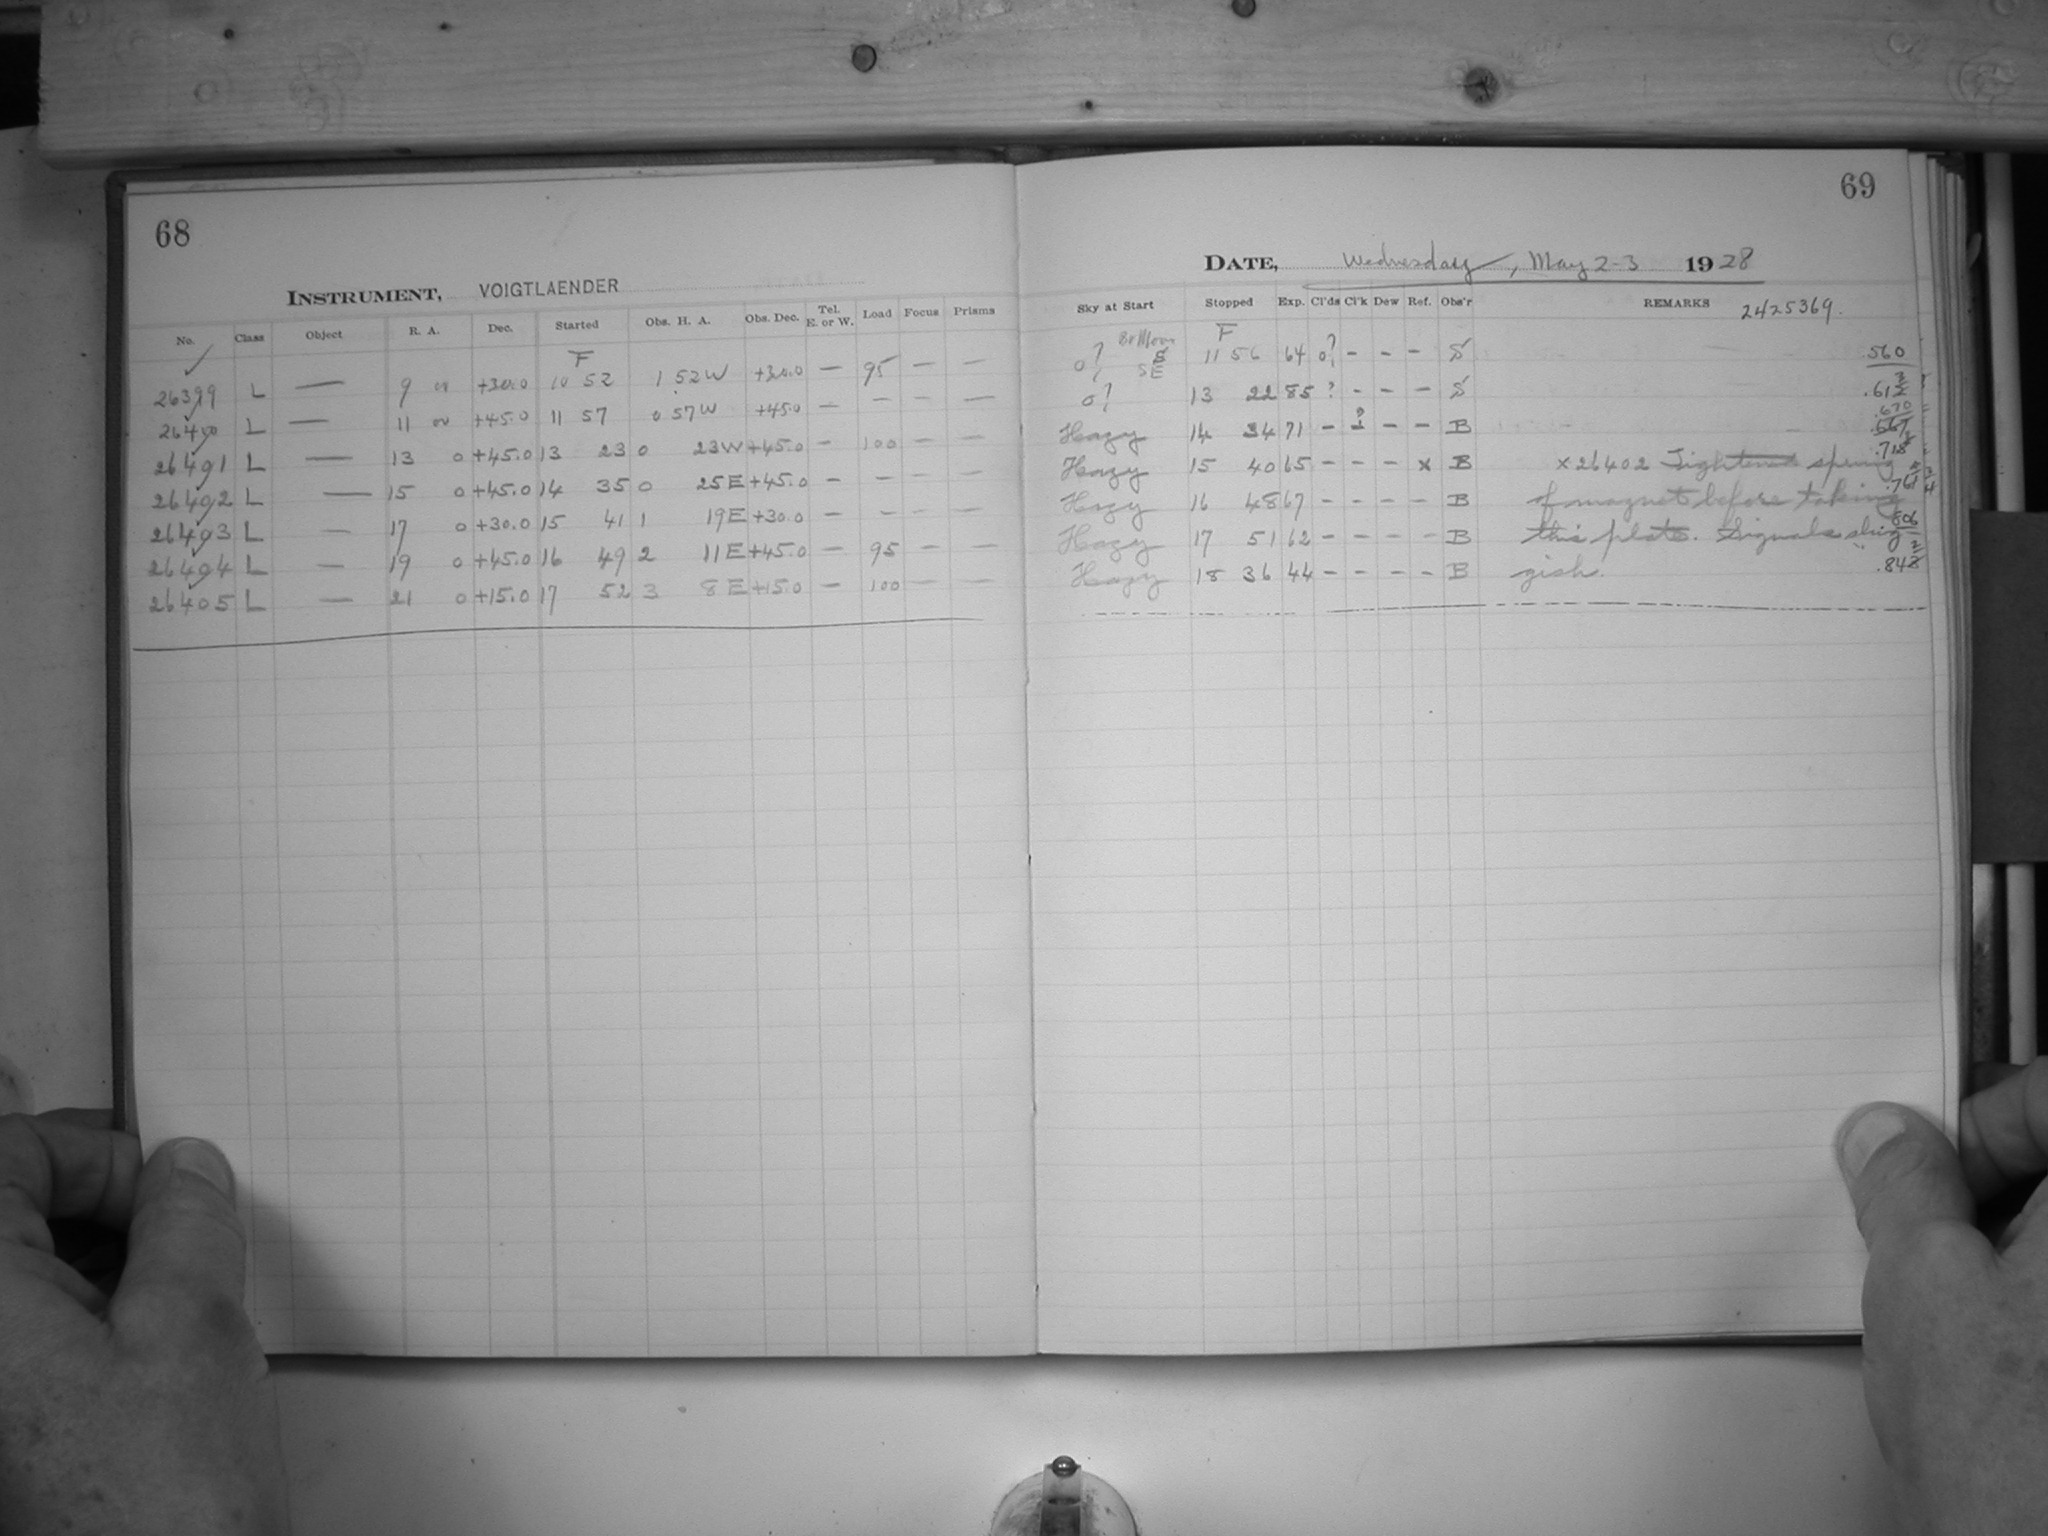 68
INSTRUMENT, VOIGTLAENDER
No. Class Object R. A. Dec. Started Obs. H. A. Obs. Dec. Tel. E. or W. Load Focus Prisms
F
26399 L — 9 00 +30.0 10 52 1 52W +30.0 — 95 — —
26400 L — 11 00 +45.0 11 57 0 57W +45.0 — — — —
26401 L — 13 0 +45.0 13 23 0 23W +45.0 — 100 — —
26402 L — 15 0 +45.0 14 35 0 25E +45.0 — — — —
26403 L — 17 0 +30.0 15 41 1 19E +30.0 — — — —
26404 L — 19 0 +45.0 16 49 2 11E +45.0 — 95 — —
26405 L — 21 0 +15.0 17 52 3 8E +15.0 — 100 — —
69
DATE, Wednesday, May 2-3 1928
Sky at Start Stopped Exp. Cl'ds Cl'k Dew Ref. Obs'r REMARKS 2425369.
F
0? Moon SE 11 56 64 0? – – – S .560
0? 13 22 85 ? – – – S .612
Hazy 14 34 71 – ? – – B .670
Hazy 15 40 65 – – – x B x 26402 Tightened spring .718
Hazy 16 48 67 – – – – B of magnet before taking .761
Hazy 17 51 62 – – – – B this plate. Signals slug- .806
Hazy 18 36 44 – – – – B gish. .842